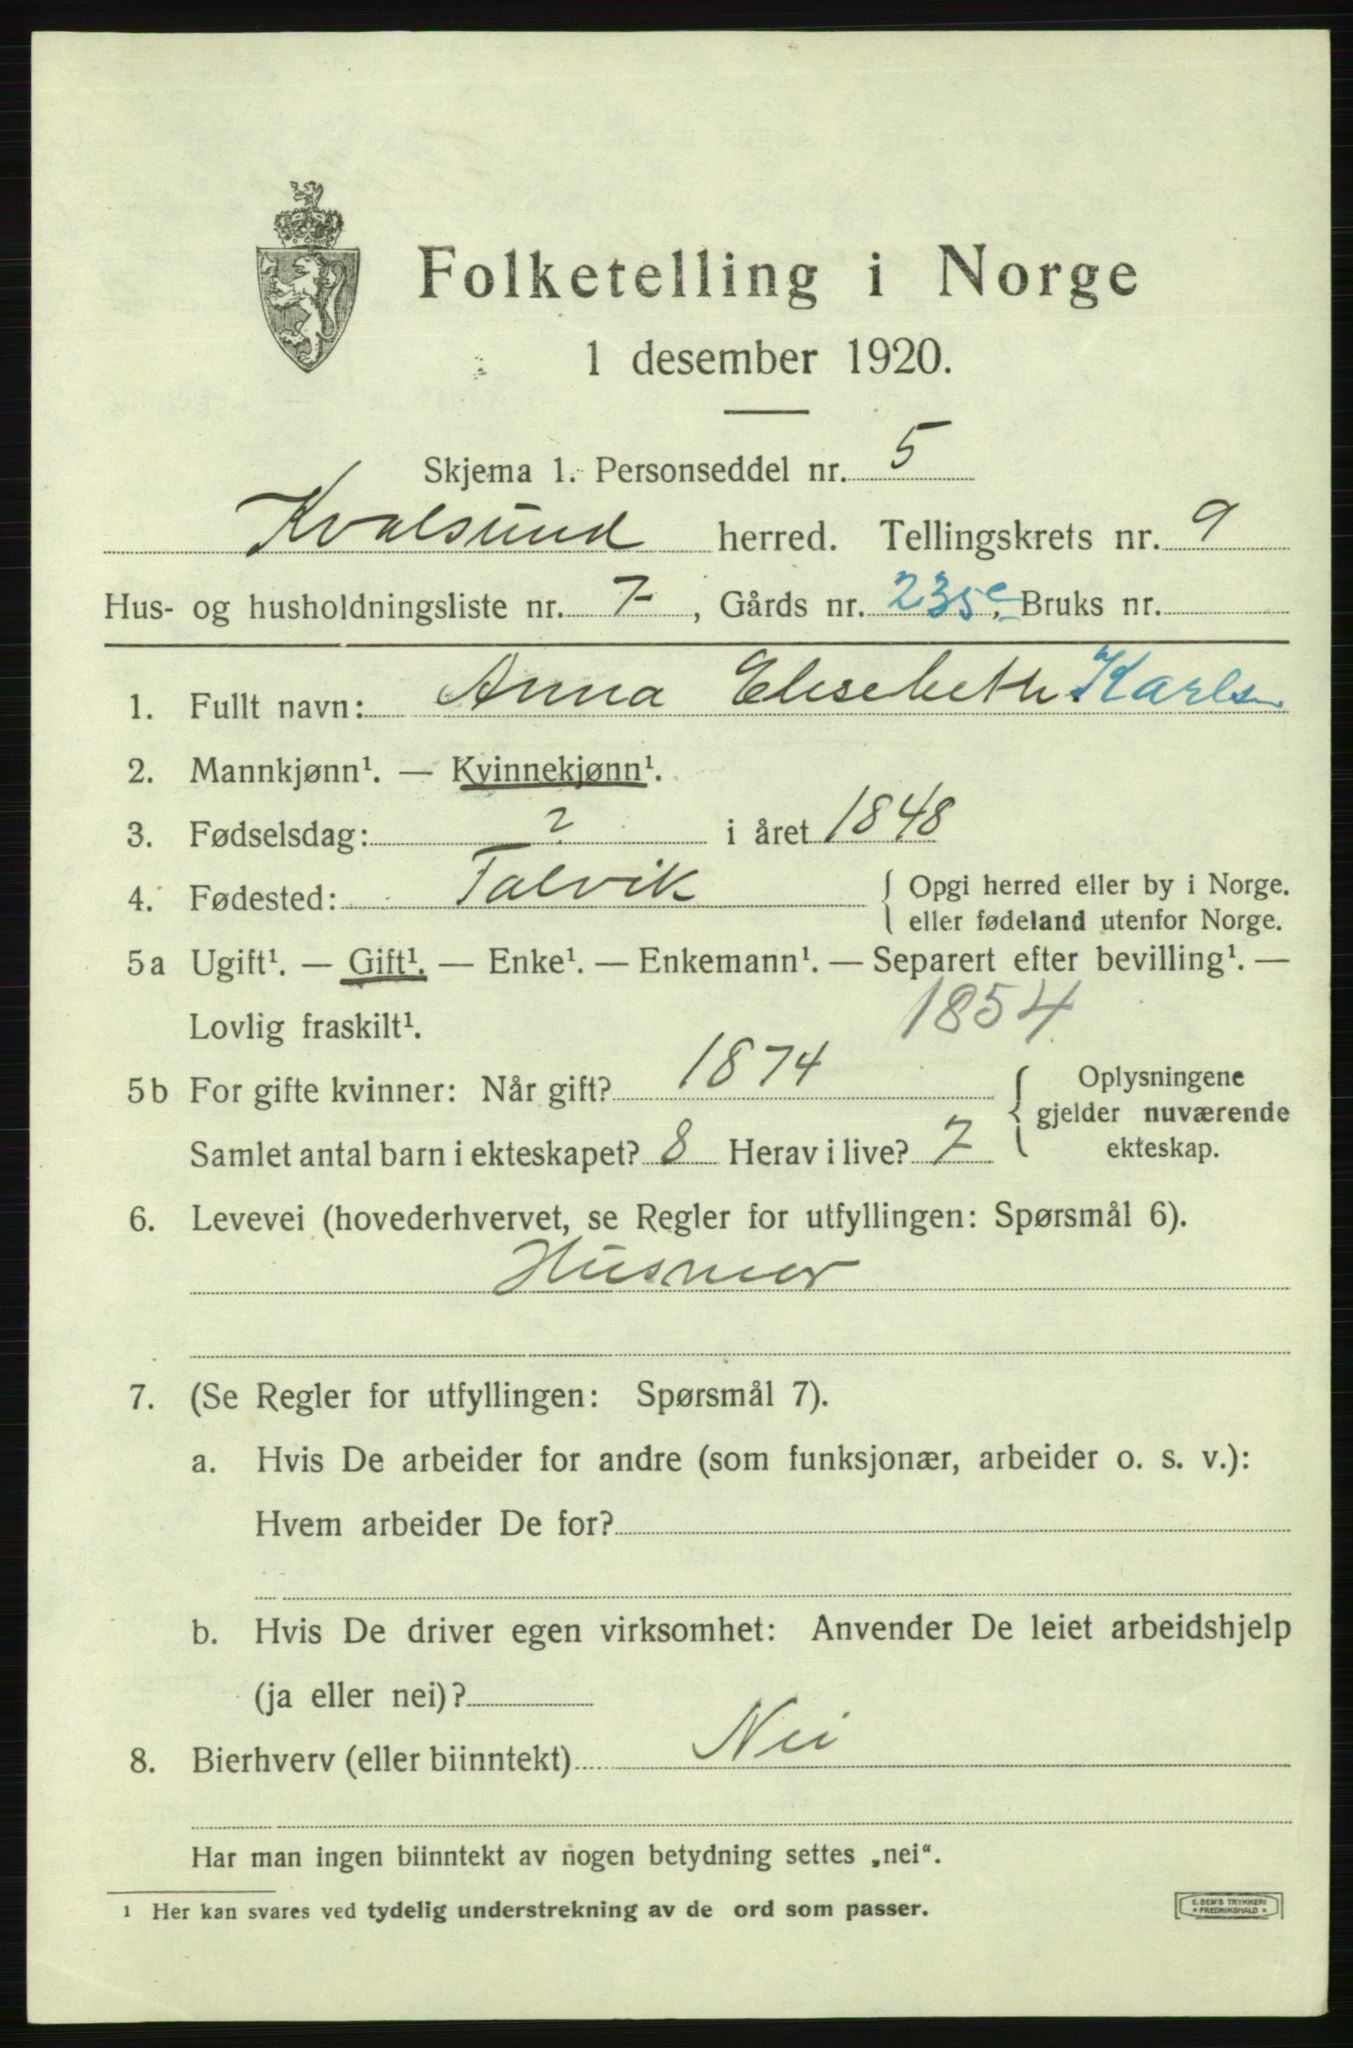 Folketelling i Norge
1 desember 1920.
Skjema 1. Personseddel nr. 5
Kvalsund herred. Tellingskrets nr. 9
Hus- og husholdningsliste nr. 7, Gårds nr. 235e, Bruks nr.
1. Fullt navn: Anna Elisebeth Karlsn
2. Mannkjønn¹. — Kvinnekjønn¹.
3. Fødselsdag: ? i året 1848
4. Fødested: Talvik { Opgi herred eller by i Norge.
eller fødeland utenfor Norge.
5a Ugift¹. — Gift¹. — Enke¹. — Enkemann¹. — Separert efter bevilling¹. —
Lovlig fraskilt¹. 1854
5b For gifte kvinner: Når gift? 1874 { Oplysningene
gjelder nuværende
Samlet antal barn i ekteskapet? 8 Herav i live? 7 ekteskap.
6. Levevei (hovederhvervet, se Regler for utfyllingen: Spørsmål 6).
Husmor
7. (Se Regler for utfyllingen: Spørsmål 7).
a. Hvis De arbeider for andre (som funksjonær, arbeider o. s. v.):
Hvem arbeider De for?
b. Hvis De driver egen virksomhet: Anvender De leiet arbeidshjelp
(ja eller nei)?
8. Bierhverv (eller biinntekt) Nei
Har man ingen biinntekt av nogen betydning settes „nei“.
¹ Her kan svares ved tydelig understrekning av de ord som passer.
E. SEM'S TRYKKERI
* FREDRIKSHALD *